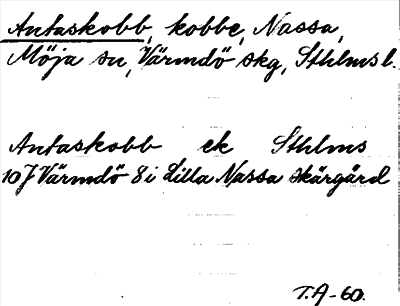 Antaskobb, kobbe, Nassa,
Möja sn, Värmdö skg, Sthlms l.
Antaskobb ek Sthlms
10J Värmdö 8 i Lilla Nassa skärgård
T.A-60.